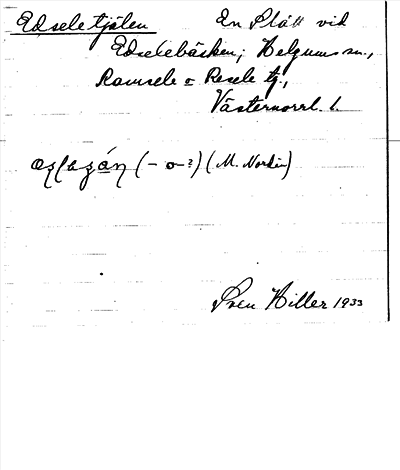 Edseletjälen En Slått vid
Edselebäcken, Helgums sn.,
Ramsele o Resele tg.,
Västernorrl. l.
(- o - ?) (M. Nordin)
Sven Hiller 1933